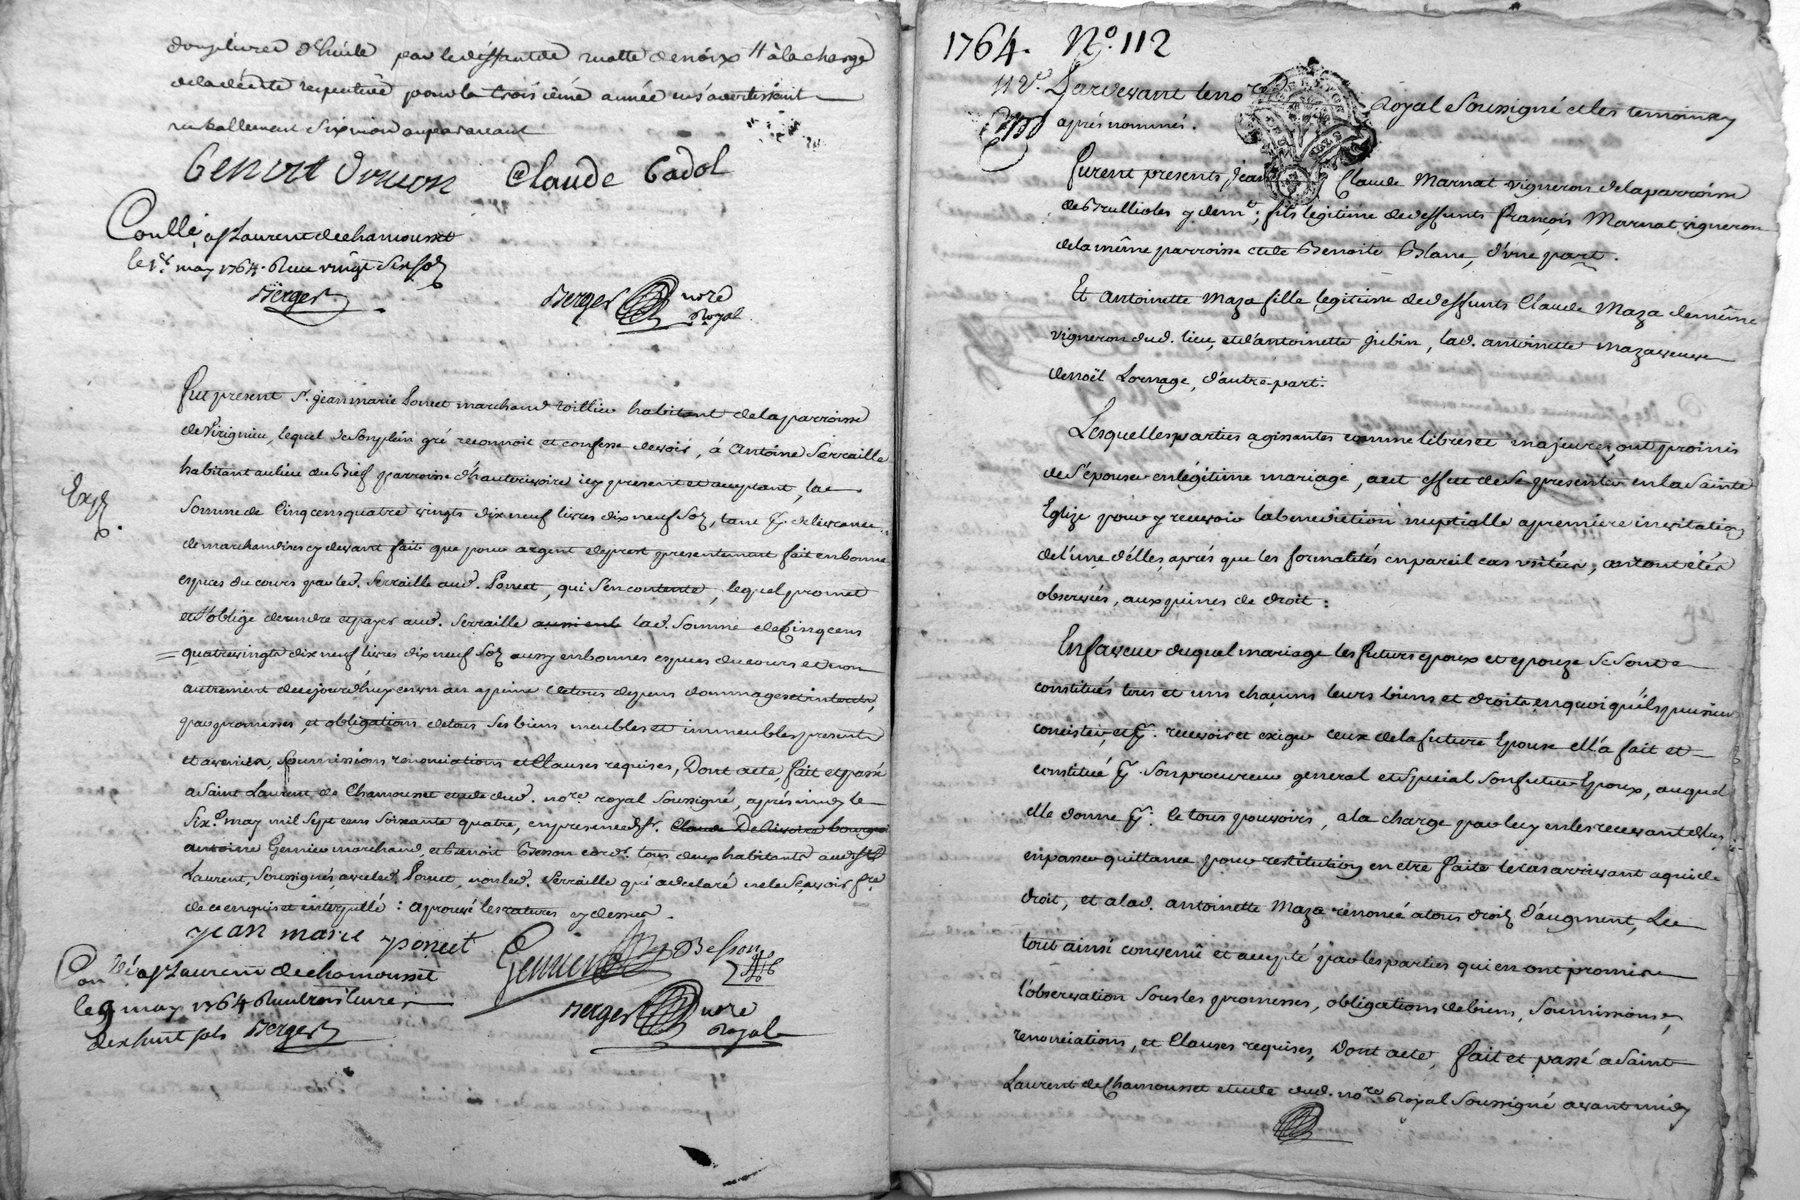 d'huile par le deffaut de motte de noix et à la charge
de la dédite respective pour la troisième année en s'avertissant
verballement six mois auparavant
Claude Gadol
Conllé a St Laurent de chamousset
le may 1764. Reçu vingt six sols
Berger
Berger nore
Royal
Fut present Sr. jean marie Poncet marchand voillier habitant de la parroisse
de Virignieu, lequel de son plein gré reconnoit et confesse devoir, à Antoine Serraille
habitant au lieu du Bief parroisse d'hauterivoire icy present et acceptant, la
Somme de Cinq cens quatre vingts dix neuf livres dix neuf sols, tant pr. delivrance
de marchandises cy devant fait que pour argent de prest presentement fait en bonne
especes du cours par led. Serraille aud. Poncet, qui s'en contente, lequel promet
et s'oblige de rendre et payer aud. Serraille lad. Somme de Cinq cens
quatre vingts dix neuf livres dix neuf sols aussy en bonnes especes du cours et non
autrement de ce jourd'huy en un an a peine de tous depens dommages et interets,
par promesses, et obligations de tous ses biens meubles et immeubles presents
et avenir, soumissions renonciations et Clauses requises, Dont acte, fait et passé
a Saint Laurent de Chamousset etude dud. nore. royal soussigné, après midy le
Six. may mil sept cens soixante quatre, en presence de Sr. Claude DeRivoire bourgeois
antoine Gennieu marchand, et Benoit Besson cordr. tous deux habitants aud. St
Laurent, Soussignés, avec led. Poncet, non led. Serraille qui a declaré ne le sçavoir fre.
de ce enquis et interpellé : aprouvé les ratures cy dessus.
jean marie poncet
Gennieu Besson
Conllé a St Laurent de chamousset
le 9 may 1764 Reçu trois livres
dix huit sols Berger
Berger nore
Royal
1764. No. 112
112e. Pardevant le nore Royal Soussigné et les temoins
après nommés.
Furent presents, Jean Claude Marnat vigneron de la parroisse
de Brullioles y demt.; fils legitime de deffunts françois Marnat vigneron
de la même parroisse et de Benoite Blanc, d'une part.
Et Antoinette Maza fille legitime de deffunts Claude Maza de même
vigneron dud. lieu, et d'antoinette jubin, lad. antoinette Maza veuve
de noël Lornage, d'autre part.
Lesquelles parties agissantes comme libres et majeures, ont promis
de s'épouser en légitime mariage, a cet effet de se presenter en la Sainte
Eglize pour y recevoir la benediction nuptialle a premiere invitation
de l'une d'elles, après que les formalités en pareil cas usitées, auront étés
observées, aux peines de droit :
En faveur duquel mariage les futurs epoux et epouze se sont
constitués tous et uns chacuns leurs biens et droits en quoi qu'ils puissent
concister, et pr. recevoir et exiger ceux de la future Epouse ell'a fait et
constitué pr. Son procureur general et special son futur Epoux, auquel
elle donne pr. ce tous pouvoirs, a la charge par luy en les recevant d'en
en passer quittance pour restitution en etre faite le cas arrivant a qui de
droit, et a lad. antoinette Maza renoncé a tous droits d'augment, Le
tout ainsi convenû et accepté par les parties qui en ont promis
l'observation sous les promesses, obligations de biens, Soumissions,
renonciations, et Clauses requises, Dont acte, fait et passé a Saint
Laurent de Chamousset etude dud. nore Royal Soussigné avant midy